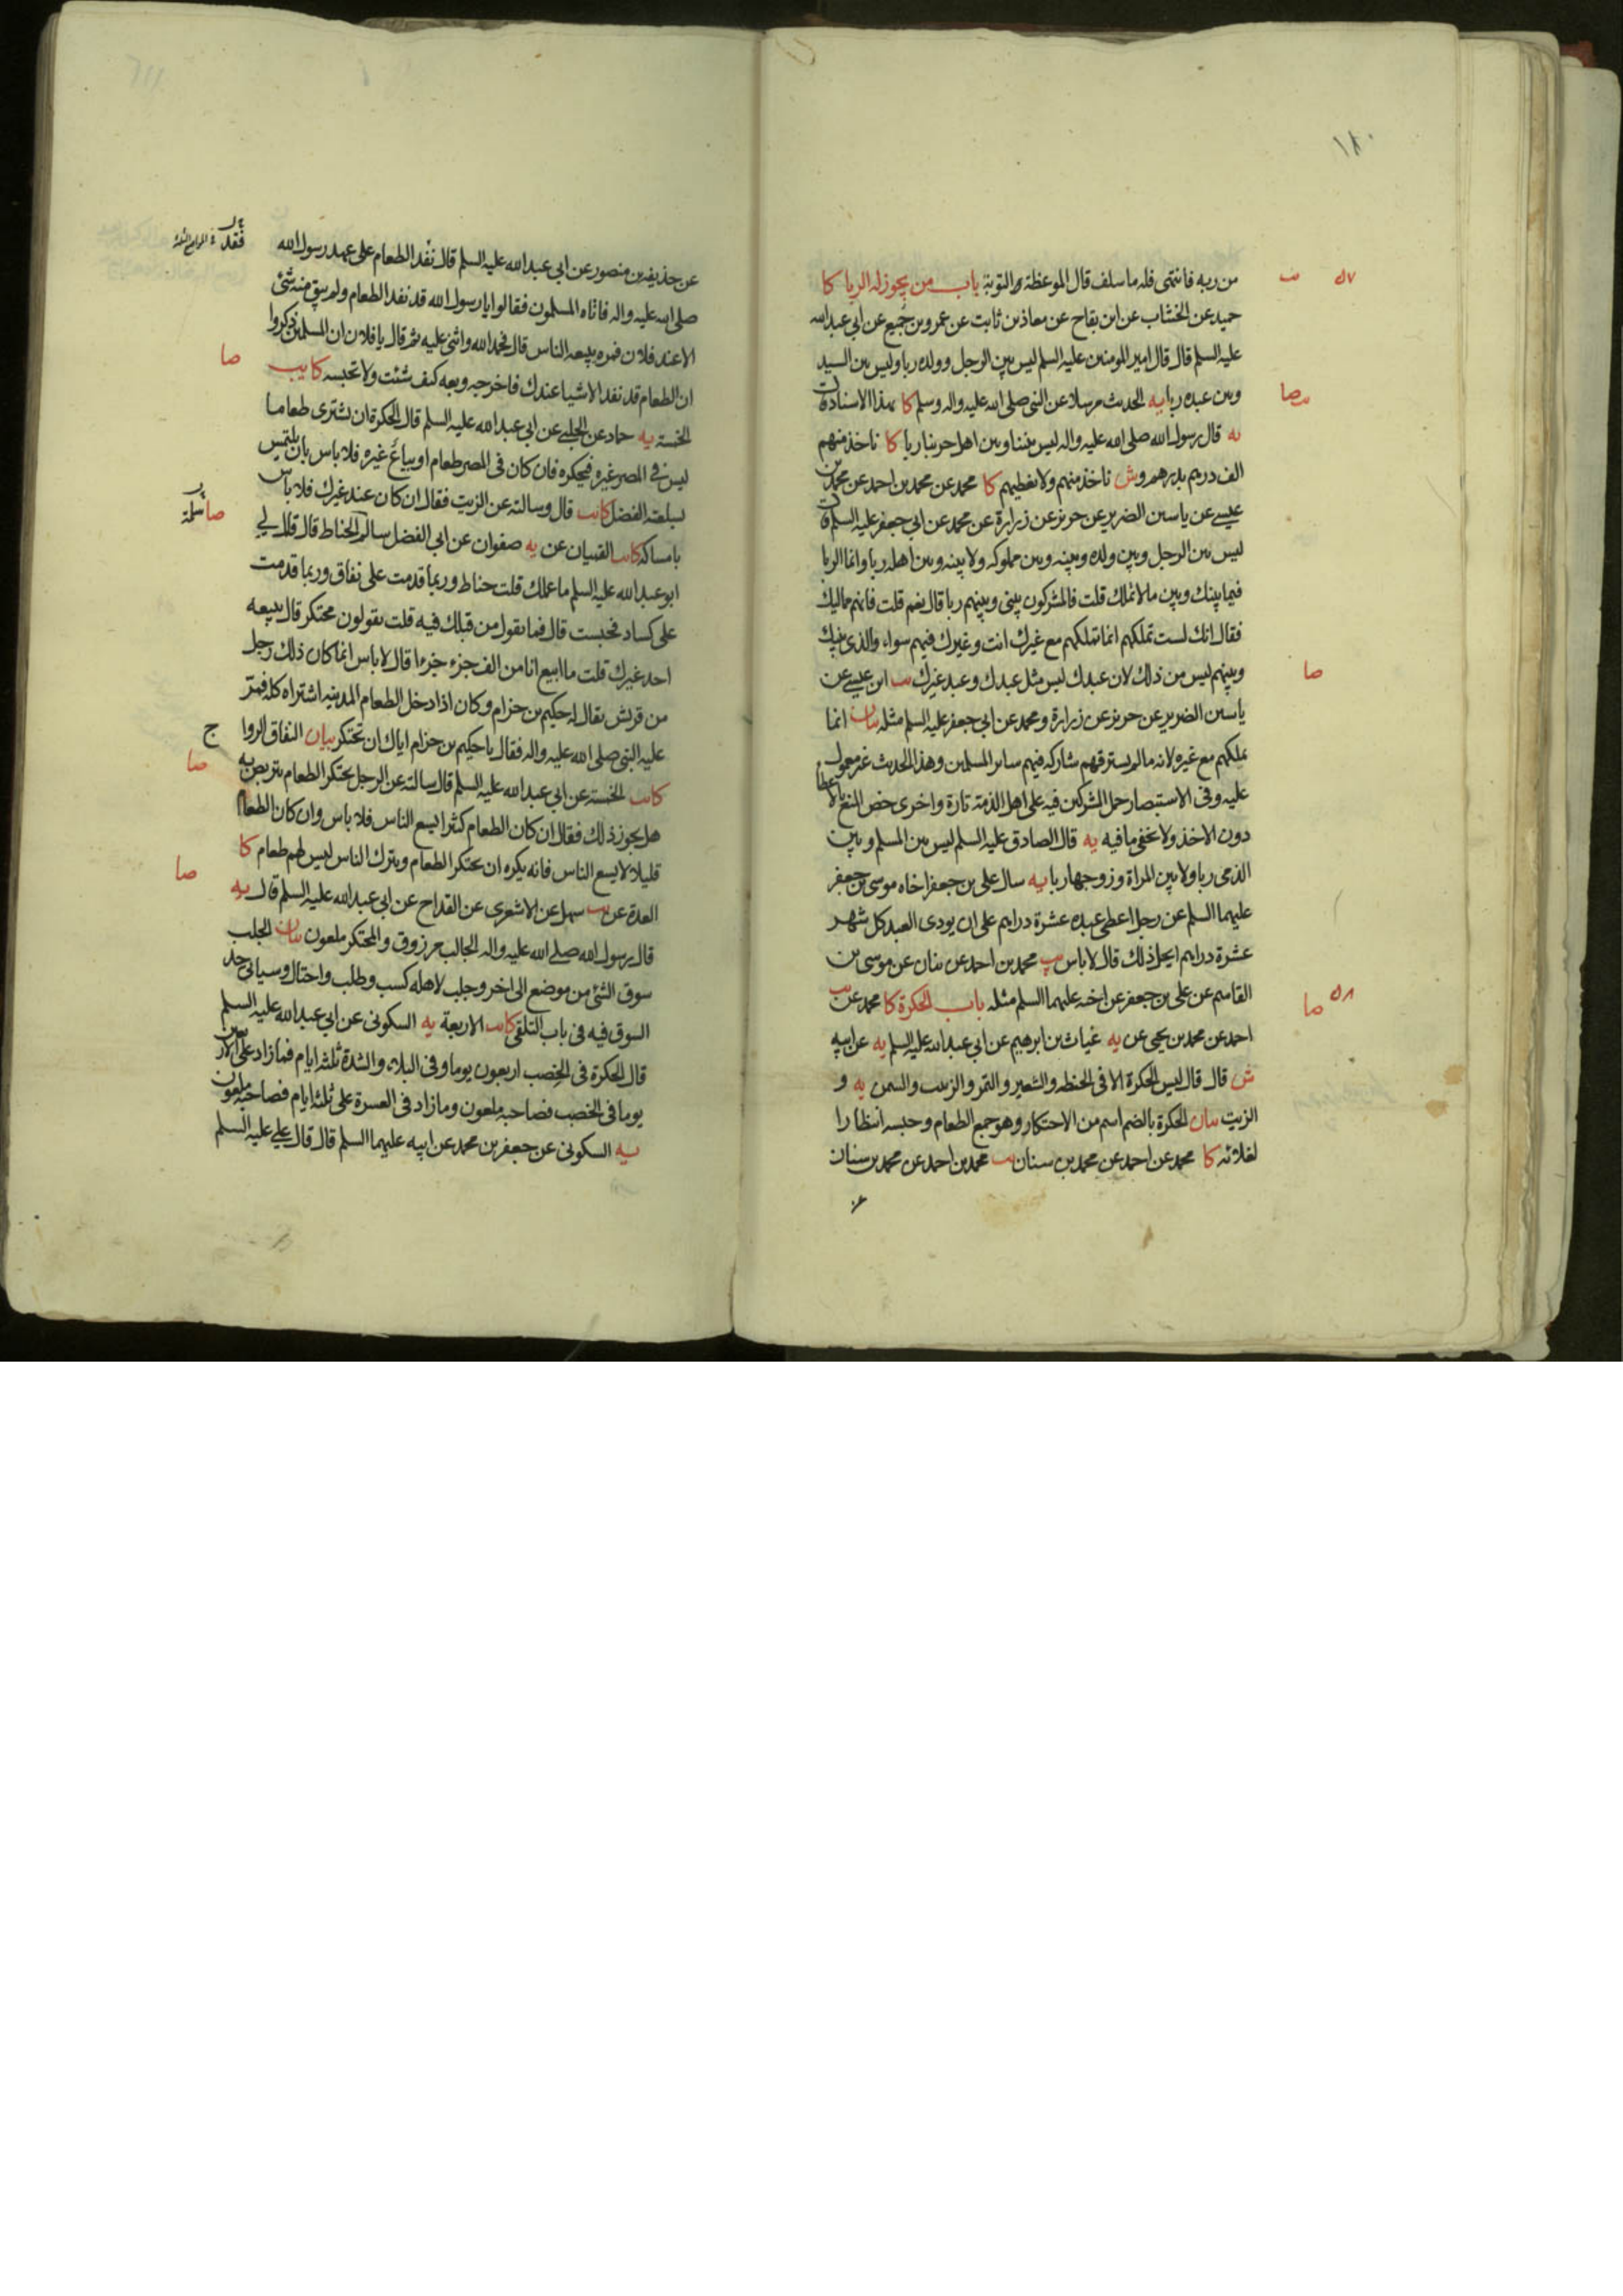 ١٨٠
من ربه فانتهى فله ما سلف قال الموعظة التوبة باب من يجوز له الربا كا
حميد عن الخشاب عن ابن بقاح عن معاذ بن ثابت عن عمرو بن جميع عن ابي عبدالله
عليه السلم قال قال امير المومنين عليه السلم ليس بين الرجل وولده ربا وليس بين السيد
وبين عبده ربا يه الحديث مرسلا عن النبي صلى الله عليه واله وسلم كا بهذا الاسناد ق
يه قال رسول الله صلى الله عليه واله ليس بيننا وبين اهل حربنا ربا كا ناخذ منهم
الف درهم بدرهم وش ناخذ منهم ولا نعطيهم كا محمد عن محمد بن احمد عن محمد بن
عيسى عن ياسين الضرير عن حريز عن زرارة عن محمد عن ابي جعفر عليه السلم ق
ليس بين الرجل وبين ولده وبينه وبين مملوكه ولا بينه وبين اهله ربا وانما الربا
فيما بينك وبين ما لا تملك قلت فالمشركون بيني وبينهم ربا قال نعم قلت فانهم مماليك
فقال انك لست تملكهم انما تملكهم مع غيرك انت وغيرك فيهم سواء والذي بينك
وبينهم ليس من ذلك لان عبدك ليس مثل عبدك وعبد غيرك يب ابن عيسى عن
ياسين الضرير عن حريز عن زرارة ومحمد عن ابي جعفر عليه السلم مثله بيان انما
يملكهم مع غيره لانه ما لم يسترقهم شاركه فيهم سائر المسلمين وهذا الحديث غير معمول
عليه وفي الاستبصار حمل المشركين فيه على اهل الذمة تارة واخرى خص النفع بالاعطا
دون الاخذ ولا يخفى ما فيه يه قال الصادق عليه السلم ليس بين المسلم وبين
الذمي ربا ولا بين المراة وزوجها ربا يه سال علي بن جعفر اخاه موسى بن جعفر
عليهما السلم عن رجل اعطى عبده عشرة دراهم على ان يودي العبد كل شهر
عشرة دراهم ايحل ذلك قال لا باس يب محمد بن احمد عن بنان عن موسى بن
القاسم عن علي بن جعفر عن اخيه عليهما السلم مثله باب الحكرة كا محمد عن يب
احمد عن محمد بن يحيى عن يه غياث بن ابرهيم عن ابي عبد الله عليه السلم يه عن ابيه
ش قال قال ليس الحكرة الا في الحنطه والشعير والتمر والزبيب والسمن يه و
الزيت بيان الحكرة بالضم اسم من الاحتكار وهو جمع الطعام وحبسه انتظارا
لغلائه كا محمد عن احمد عن محمد بن سنان يب محمد بن احمد عن محمد بن سنان
عن
٥٧
صا
صا
٥٨
صا
عن حذيفة بن منصور عن ابي عبدالله عليه السلم قال نفد الطعام على عهد رسول الله
صلى الله عليه واله فاتاه المسلمون فقالوا يا رسول الله قد نفد الطعام ولم يبق منه شئ
الا عند فلان فمره يبيعه الناس قال فحمد الله واثنى عليه ثم قال يا فلان ان المسلمين ذكروا
ان الطعام قد نفد الا شيا عندك فاخرجه وبعه كيف شئت ولا تحبسه كا يب
الخمسة يه حماد عن الحلبي عن ابي عبد الله عليه السلم قال الحكرة ان تشترى طعاما
ليس في المصر غيره فيحكره فان كان في المصر طعام او يباع غيره فلا باس بان يلتمس
لسلعته الفضل كا يب قال وسالته عن الزيت فقال ان كان عند غيرك فلا باس
بامساكه كا يب القميان عن يه صفوان عن ابي الفضل سالم الحناط قال قال لي
ابو عبد الله عليه السلم ما عملك قلت حناط وربما قدمت على نفاق وربما قدمت
على كساد فحبست قال فما يقول من قبلك فيه قلت يقولون محتكر قال يبيعه
احد غيرك قلت ما ابيع انا من الف جزء جزءا قال لا باس انما كان ذلك رجل
من قريش يقال له حكيم بن حزام وكان اذا دخل الطعام المدينة اشتراه كله فمر
عليه النبي صلى الله عليه واله فقال يا حكيم بن حزام اياك ان تحتكر بيان النفاق الروا ج
كا يب الخمسة عن ابي عبد الله عليه السلم قال سالته عن الرجل يحتكر الطعام يتربص به
هل يجوز ذلك فقال ان كان الطعام كثيرا يسع الناس فلا باس وان كان الطعام
قليلا لا يسع الناس فانه يكره ان يحتكر الطعام ويترك الناس ليس لهم طعام كا
العدة عن يب سهل عن الاشعرى عن القداح عن ابي عبدالله عليه السلم قال يه
قال رسول الله صلى الله عليه واله الجالب مرزوق والمحتكر ملعون بيان الجلب
سوق الشئ من موضع الى اخر وجلب لاهله كسب وطلب واحتال وسياتي حد
السوق فيه في باب التلقي كا يب الاربعة يه السكوني عن ابي عبد الله عليه السلم
قال الحكرة في الخصب اربعون يوما وفي البلاء والشدة ثلثة ايام فما زاد على الاربعين
يوما في الخصب فصاحبه ملعون وما زاد في العسرة على ثلثة ايام فصاحبه ملعون
يه السكوني عن جعفر بن محمد عن ابيه عليهما السلم قال قال علي عليه السلم
فقد
صا
صا
صا
صا